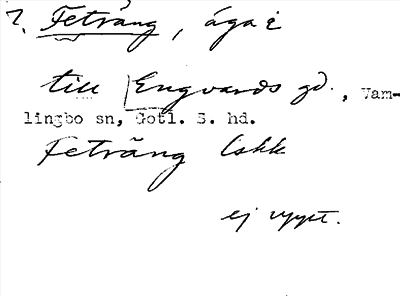 7. Feträng, äga i
till Engvards gd., Vam-
lingbo sn, Gotl. S. hd.
Feträng lskk
ej uppt.